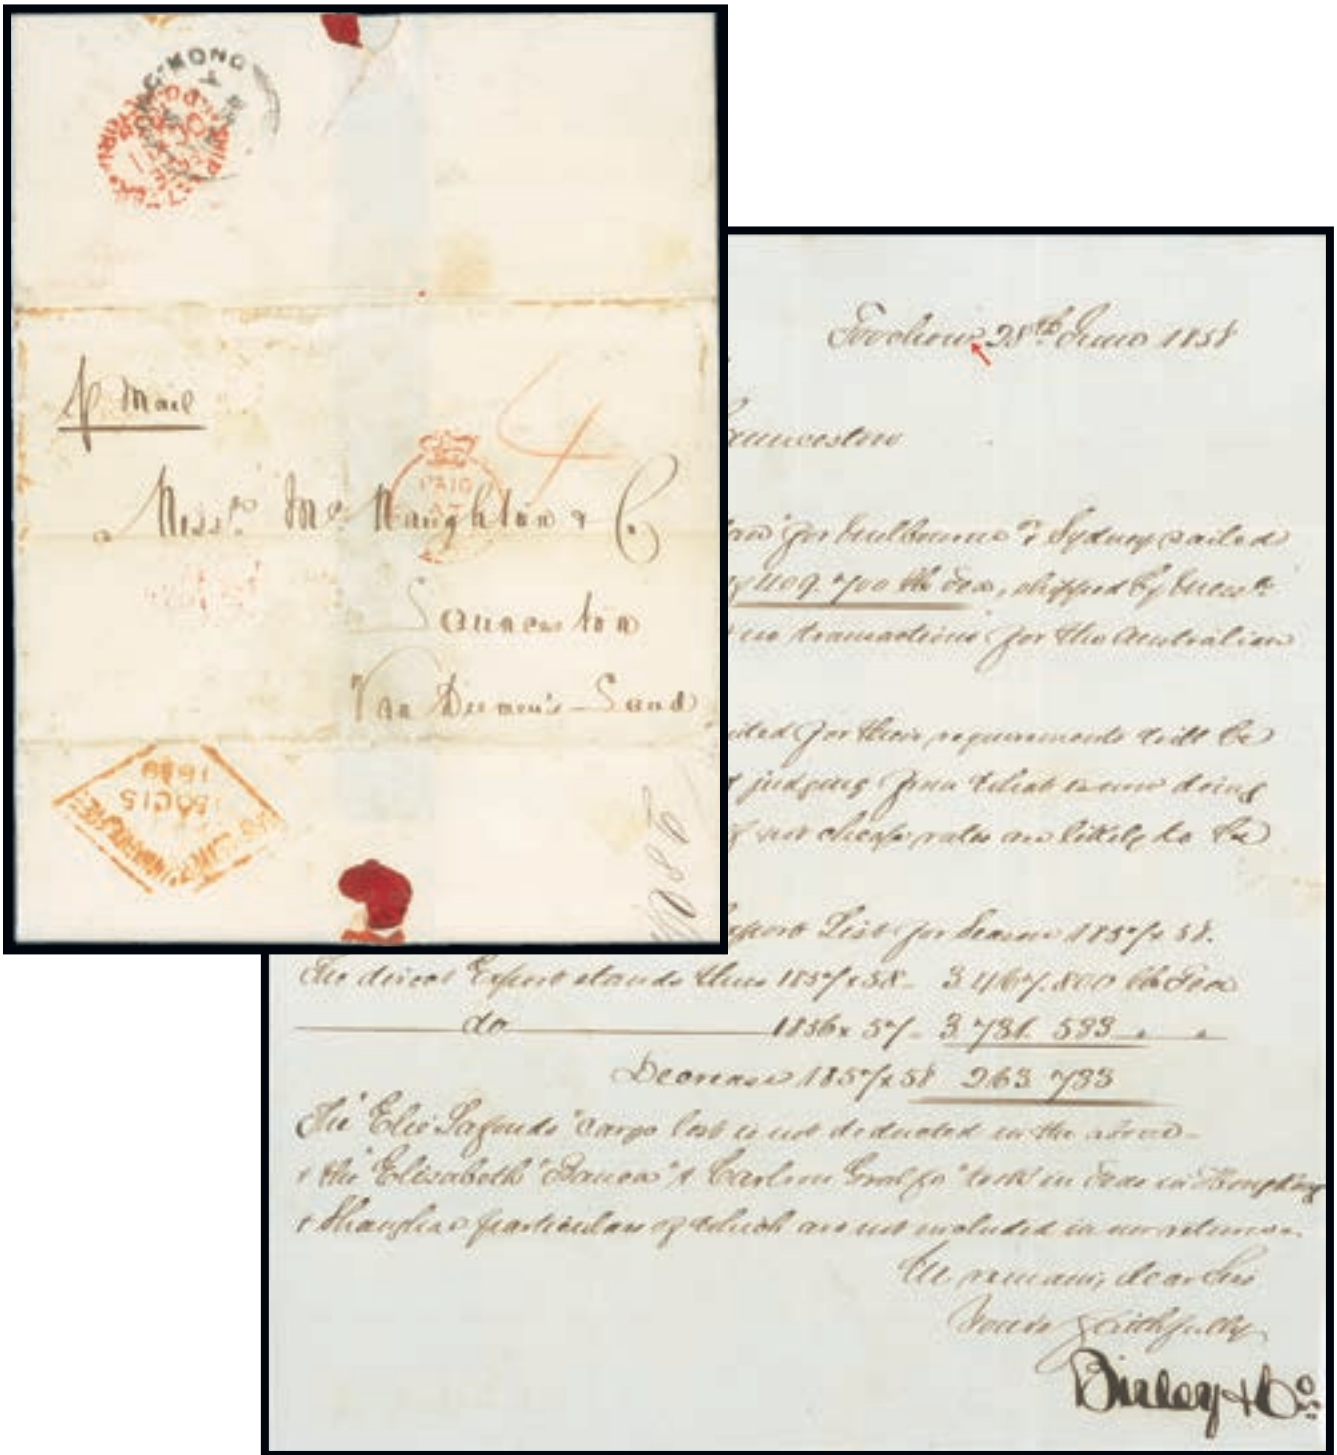 HONG-KONG
4
p Mail
PAID
Mess.rs Mc. Naughton & C.
Launceston
Van Diemen's Land
OC 15
1858
Foochow 28th June 1858
Launceston
for Melbourne & Sydney sailed
409.700 lb Tea, shipped by Mess.rs
no transactions for the Australian
for their requirements will be
judging from what is now doing
if not cheaper rates are likely to be
Export List for Season 1857/58.
The direct Export stands thus 1857 & 58 - 3.467.800 lb Tea
do 1856 & 57 - 3.731.533 " "
Decrease 1857/58 263 733
The "Elie Lafonds" cargo lost is not deducted in the above -
& the "Elizabeth" & took in Teas in Hongkong
& Shanghae particulars of which are not included in our returns.
We remain, dear Sirs
Yours faithfully
Birley & Co